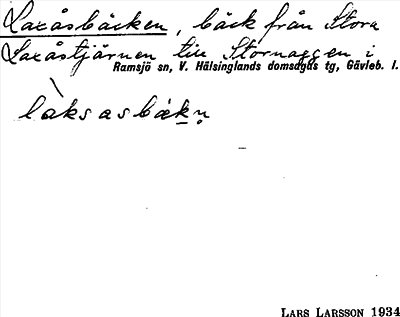 Laxåsbäcken, bäck från Stora
Laxåstjärnen till Stornaggen i
Ramsjö sn, V. Hälsinglands domsagas tg, Gävleb. l.
làksasbäkn̥
LARS LARSSON 1934